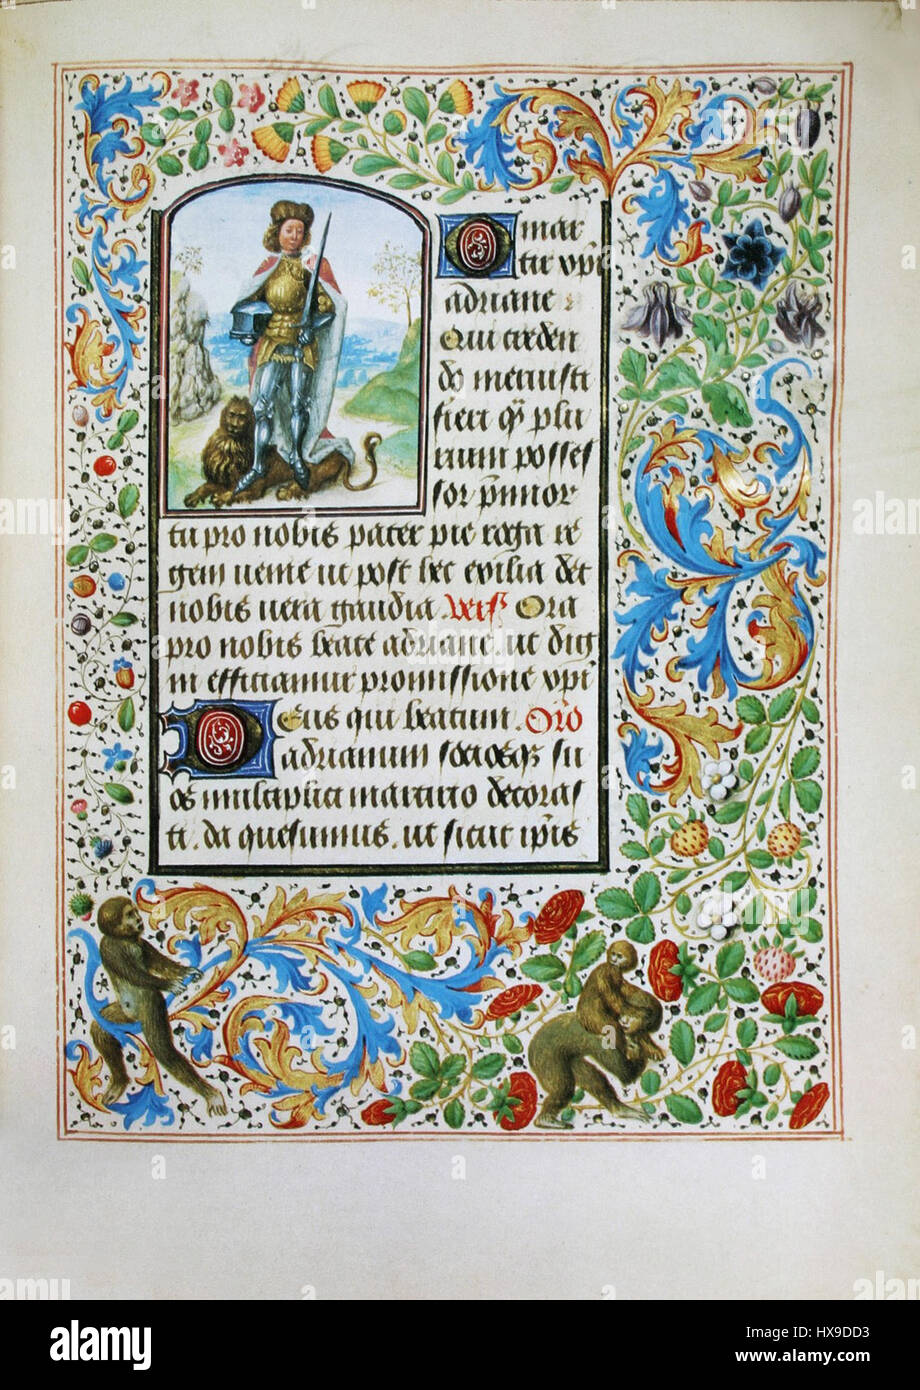 O mar
tir xp̄i
adriane
Qui creden
do meruisti
fieri
rium posses
sor
tu pro nobis pater pie roga re
gem ut post hec exilia det
nobis vera gaudia Vers̄ Ora
pro nobis beate adriane. ut dig
ni efficiamur promissione xp̄i
Deus qui beatum. Or̄o
adrianum su
os multiplici martirio decoras
ti. da quesumus. ut sicut ip̄ius
alamy
Image ID: HX9DD3
www.alamy.com